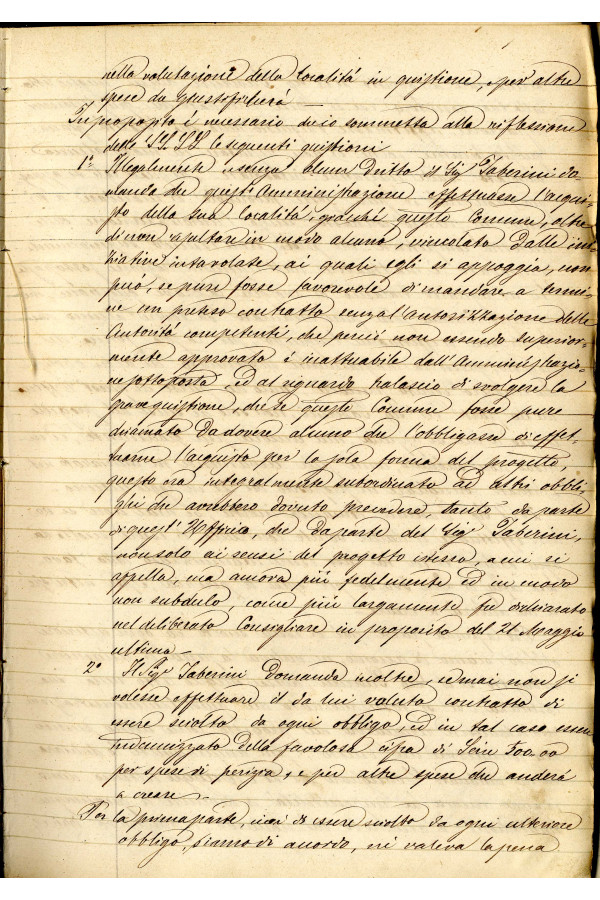 nella valutazione della località in quistione, e per altre
spese da giustificherà —
In proposito è necessario che io sommetta alla riflessione
delle SS.LL. le seguenti quistioni
1° Illegalmente e senza alcun dritto il Sig Taberini do
manda che quest'Amministrazione effettuasse l'acqui-
sto della sua località, giacchè questo Comune, oltre
di non risultare in modo alcuno, vincolato dalle ini-
ziative intavolate, ai quali egli si appoggia, non
può, se pure fosse favorevole di mandare a termi-
ne un preteso contratto senza l'Autorizzazione delle
Autorità competenti, che perciò non essendo superior-
mente approvato è inattuabile dall'Amministrazio-
ne sottoposta, ed al riguardo tralascio di svolgere la
grave quistione, che se questo Comune fosse pure
chiamato da dovere alcuno che l'obbligasse di effet-
tuarne l'acquisto per la sola forma del progetto,
questo era integralmente subordinato ad altri obbli-
ghi che avrebbero dovuto precedere, tanto da parte
di quest'Ufficio, che da parte del Sig Taberini,
non solo ai sensi del progetto istesso, a cui si
appella, ma ancora più fedelmente ed in modo
non subdolo, come più largamente fu dichiarato
nel deliberato Consigliare in proposito del 21 Maggio
ultimo —
2° Il Sig Taberini domanda inoltre, se mai non si
volesse effettuare il da lui voluto contratto di
essere sciolto da ogni obbligo, ed in tal caso essere
indennizzato della favolosa cifra di Scudi 500.00
per spese di perizia, e per altre spese che anderà
a creare —
Per la prima parte, cioè di essere sciolto da ogni ulteriore
obbligo, siamo di accordo, nè valeva la pena